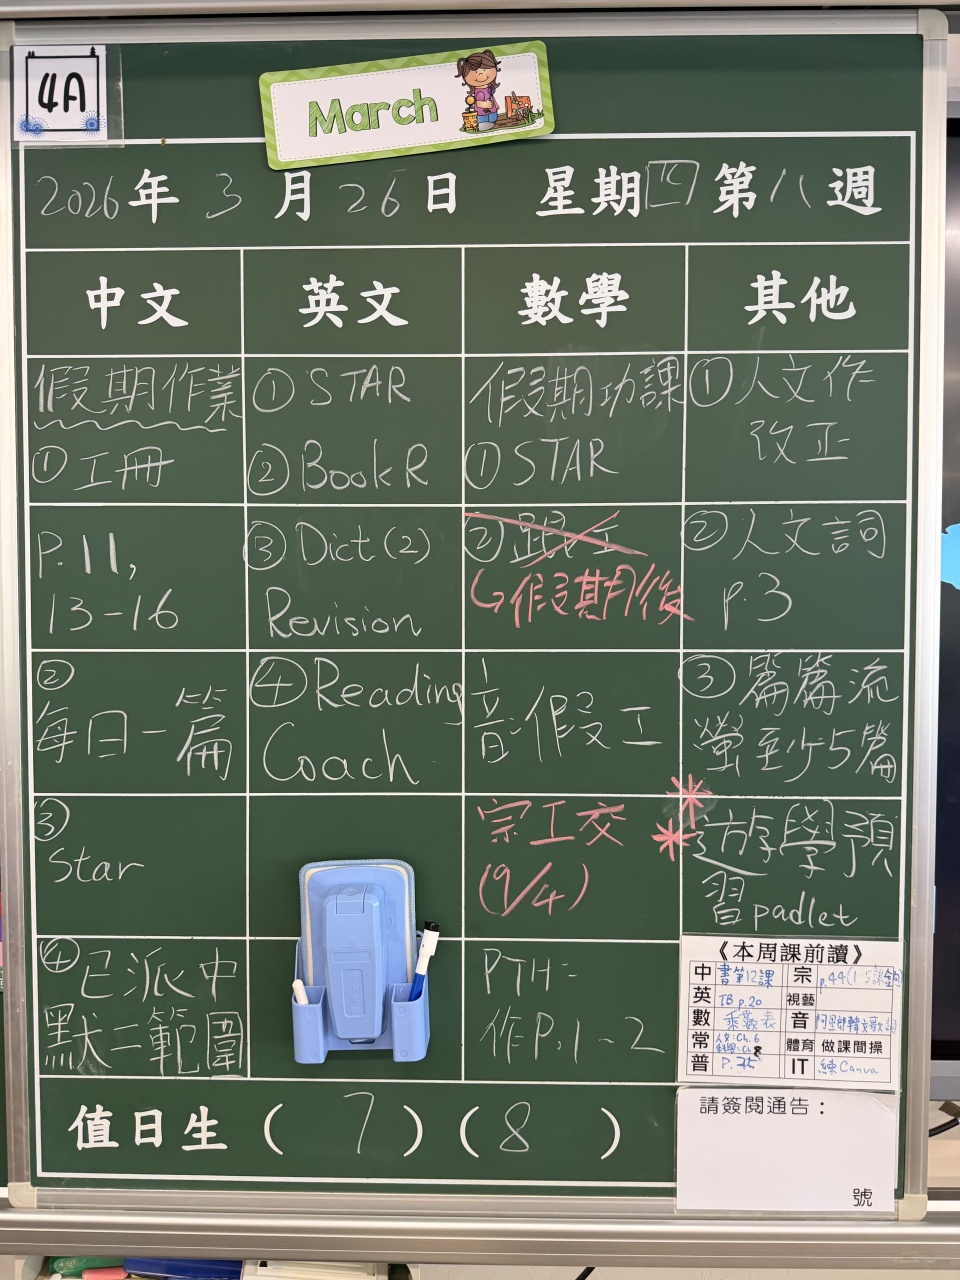 4A
March
2026年3月26日 星期四 第八週
中文
英文
數學
其他
假期作業
①工冊
P.11,
13-16
②
每日一篇
③
Star
④已派中
默二範圍
①STAR
②Book R
③Dict (2)
Revision
④Reading
Coach
假期功課
①STAR
②跟工
↳假期後
音:假工
宗工交
(9/4)
PTH:
作P.1-2
①人文作
改正
②人文詞
p.3
③篇篇流
螢至少5篇
遊學預
習padlet
《本周課前讀》
中 書第12課
宗 p.44
英 TB p.20
視藝
數 乘數表
音
常 人文:Ch.6
科學:Ch.8
體育 做課間操
普
IT 練Canva
請簽閱通告:
號
值日生 ( 7 ) ( 8 )